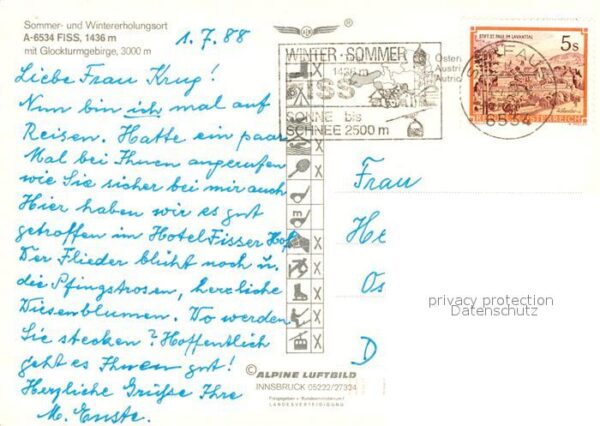 Sommer- und Wintererholungsort
A-6534 FISS, 1436 m
mit Glockturmgebirge, 3000 m
1.7.88
Liebe Frau Krug!
Nun bin ich mal auf
Reisen. Hatte ein paar
Mal bei Ihnen angerufen
wie Sie sicher bei mir auch
Hier haben wir es gut
getroffen im Hotel Fisser Hof
Der Flieder blüht noch u.
die Pfingstrosen, herrliche
Wiesenblumen. Wo werden
Sie stecken? Hoffentlich
geht es Ihnen gut!
Herzliche Grüße Ihre
M. Enste.
WINTER-SOMMER
1436 m
FISS
SONNE bis
SCHNEE 2500 m
Österr
Austri
Autric
STIFT ST. PAUL IM LAVANTTAL
5s
REPUBLIK ÖSTERREICH
6534
Frau
He
Os
D
privacy protection
Datenschutz
© ALPINE LUFTBILD
INNSBRUCK 05222/27324
Freigegeben v. Bundesministerium f.
LANDESVERTEIDIGUNG